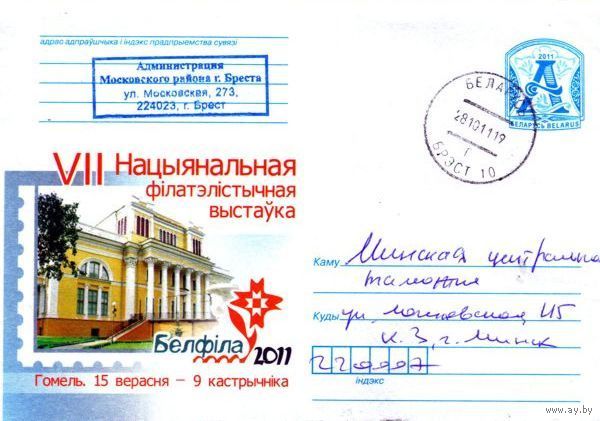 адрас адпраўшчыка і індэкс прадпрыемства сувязі
Администрация
Московского района г. Бреста
ул. Московская, 273,
224023, г. Брест
2011
А
БЕЛАРУСЬ BELARUS
БЕЛАРУСЬ
28101119
БРЭСТ 10
VII Нацыянальная
філатэлістычная
выстаўка
Белфіла 2011
Гомель. 15 верасня – 9 кастрычніка
Каму Минская центральная
таможня
Куды ул. Могилевская,
г. Минск
220007
індэкс
www.ay.by